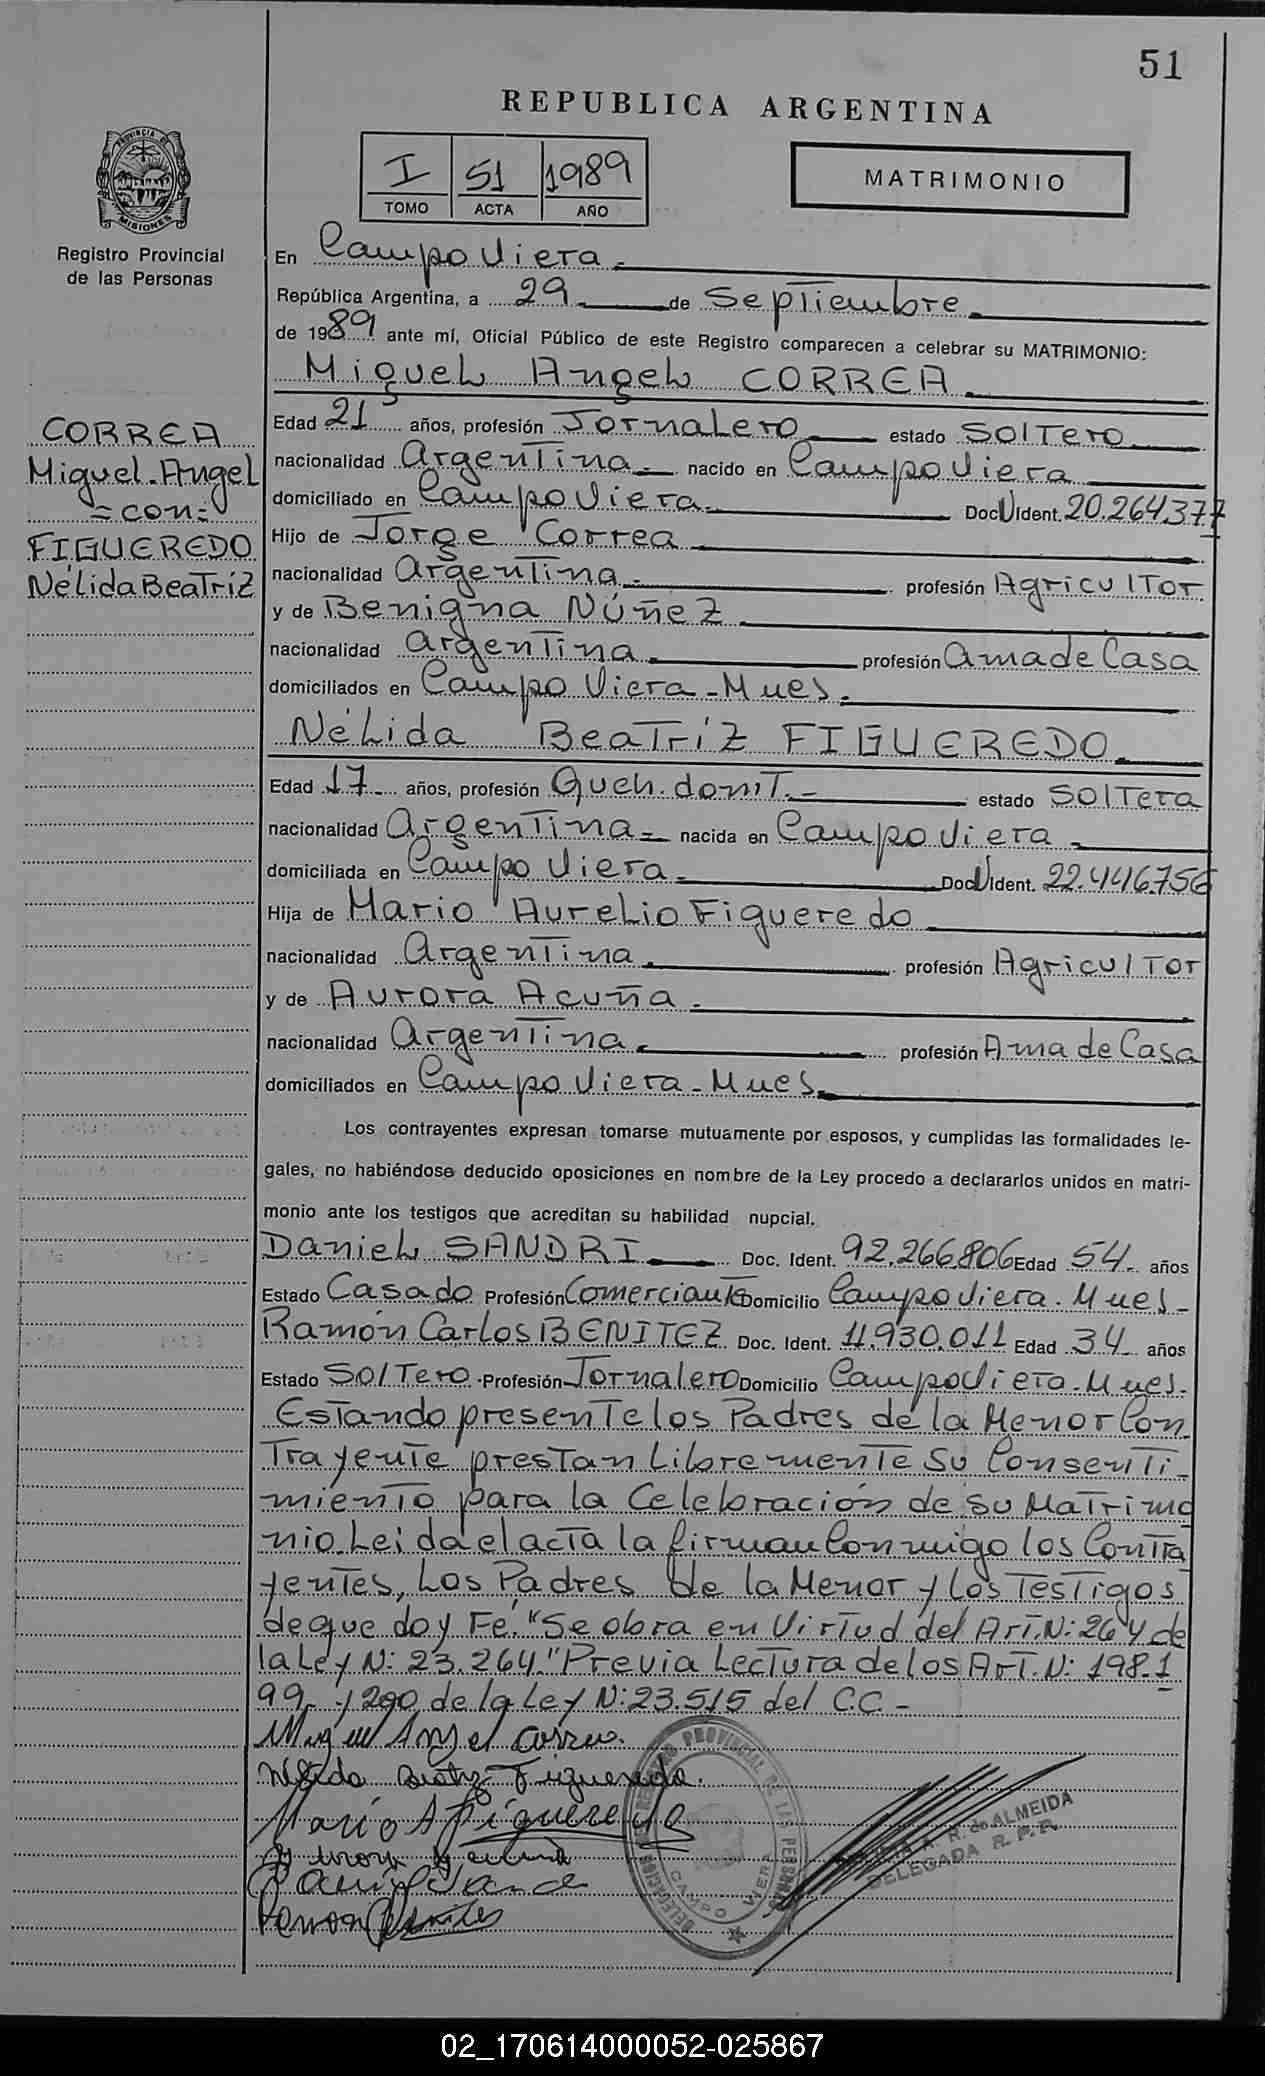 51
REPUBLICA ARGENTINA
I 51 1989
TOMO ACTA AÑO
MATRIMONIO
PROVINCIA DE MISIONES
Registro Provincial
de las Personas
CORREA
Miguel Angel
= con =
FIGUEREDO
Nélida Beatriz
En Campo Viera.
República Argentina, a 29 de Septiembre
de 1989 ante mí, Oficial Público de este Registro comparecen a celebrar su MATRIMONIO:
Miguel Angel CORREA
Edad 21 años, profesión Jornalero estado Soltero
nacionalidad Argentina. nacido en Campo Viera
domiciliado en Campo Viera. Doc. Ident. 20.264.377
Hijo de Jorge Correa
nacionalidad Argentina. profesión Agricultor
y de Benigna Núñez
nacionalidad Argentina. profesión Ama de Casa
domiciliados en Campo Viera - Mnes.
Nélida Beatríz FIGUEREDO
Edad 17 años, profesión Queh. domt. estado Soltera
nacionalidad Argentina nacida en Campo Viera
domiciliada en Campo Viera. Doc. Ident. 22.446.756
Hija de Mario Aurelio Figueredo
nacionalidad Argentina. profesión Agricultor
y de Aurora Acuña.
nacionalidad Argentina. profesión Ama de Casa
domiciliados en Campo Viera - Mnes.
Los contrayentes expresan tomarse mutuamente por esposos, y cumplidas las formalidades le-
gales, no habiéndose deducido oposiciones en nombre de la Ley procedo a declararlos unidos en matri-
monio ante los testigos que acreditan su habilidad nupcial.
Daniel SANDRI Doc. Ident. 92.266.806 Edad 54 años
Estado Casado Profesión Comerciante Domicilio Campo Viera. Mnes -
Ramón Carlos BENITEZ Doc. Ident. 11.930.011 Edad 34 años
Estado Soltero Profesión Jornalero Domicilio Campo Viera. Mnes.
Estando presente los Padres de la Menor Con
trayente prestan Libremente Su Consenti-
miento para la Celebración de su Matrimo
nio. Leida el acta la firman Conmigo los Contra
yentes, Los Padres de la Menor y los Testigos
de que doy Fé. "Se obra en Virtud del Art. N: 264 de
la Ley N: 23.264." Previa Lectura de los Art. N: 198-1
99 y 200 de la Ley N: 23.515 del C.C. -
Miguel Angel Correa.
Nélida Beatriz Figueredo.
Mario A Figueredo
Ramon Benites
REGISTRO PROVINCIAL DE LAS PERSONAS
DELEGACION
CAMPO VIERA
A. R. de ALMEIDA
DELEGADA R. P. P.
02_170614000052-025867